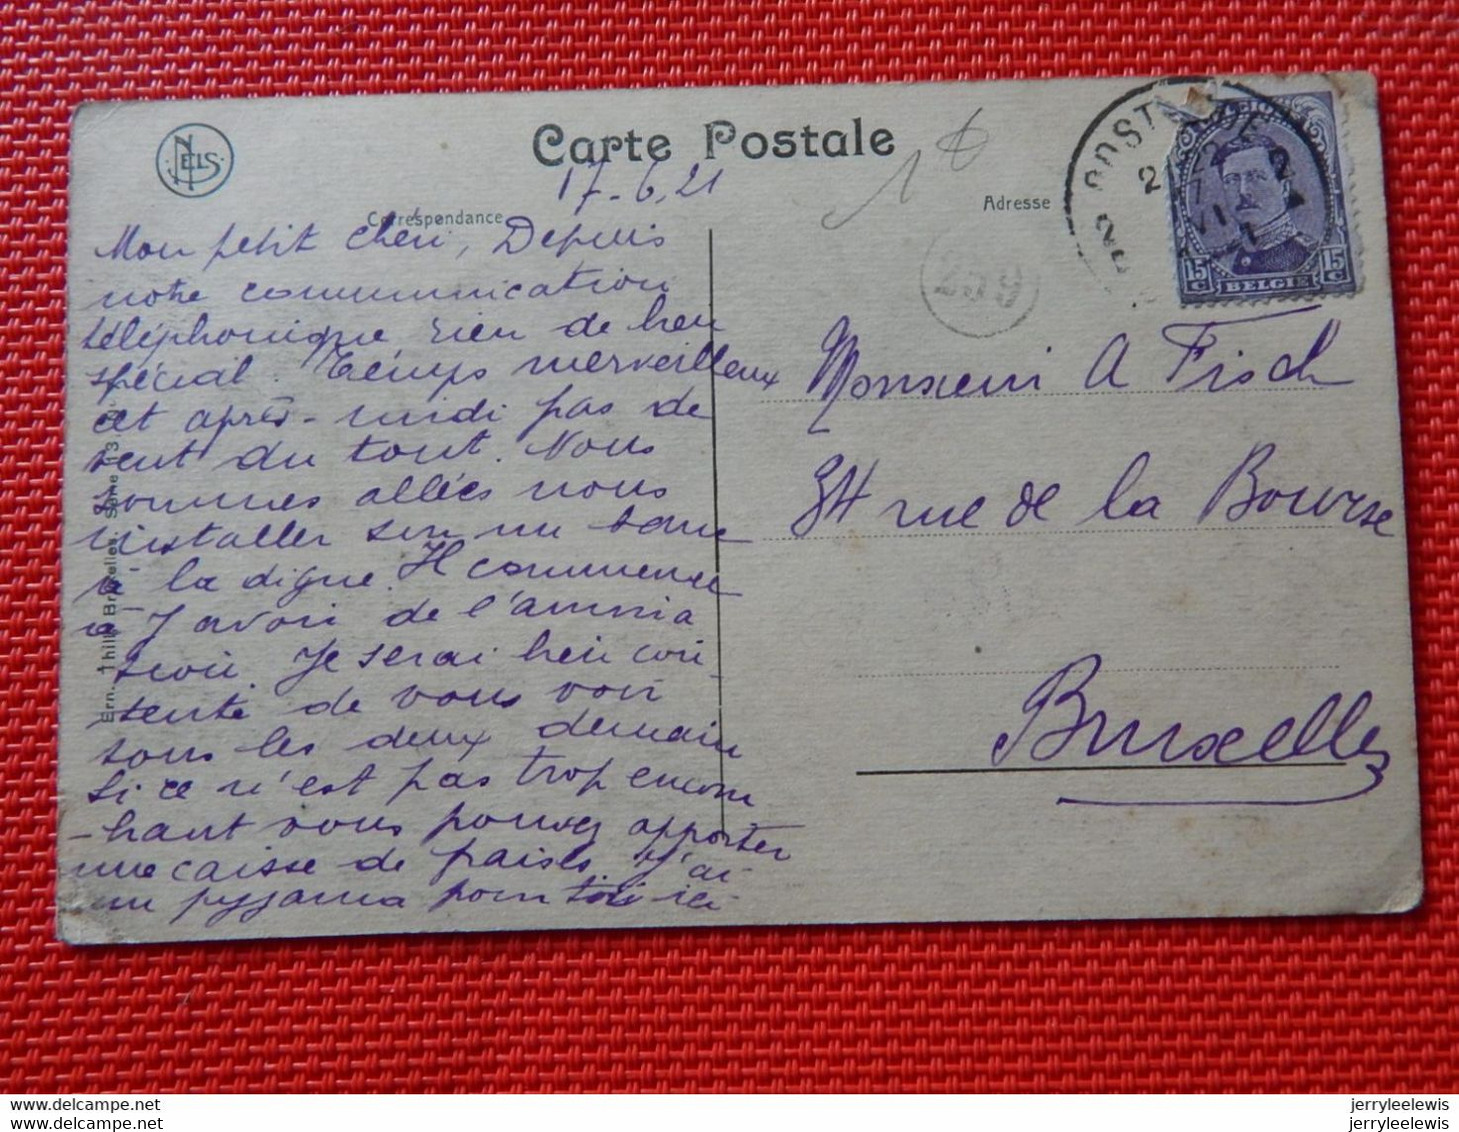 NELS
Carte Postale
17-6.21
Correspondance
Adresse
Mon petit chéri, Depuis
notre communication
téléphonique rien de bien
spécial. Temps merveilleux
cet après-midi pas de
vent du tout. Nous
sommes allées nous
installer sur un banc
à la digue. Il commence
à y avoir de l'anima
tion. Je serai bien con-
tente de vous voir
tous les deux demain
Si ce n'est pas trop encom
-brant vous pouvez apporter
une caisse de fraises. J'ai
un pyjama pour toi ici
Ern. Thill, Bruxelles.
259
OOSTENDE
BELGIE
15 c
15 c
Monsieur A Fisch
34 rue de la Bourse
Bruxelles
www.delcampe.net
www.delcampe.net
jerryleelewis
jerryleelewis